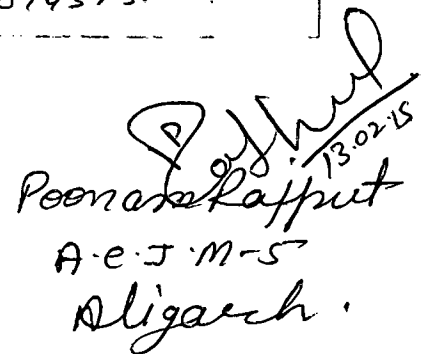 13.02.15
Poonam Rajput
A.C.J.M-5
Aligarh.